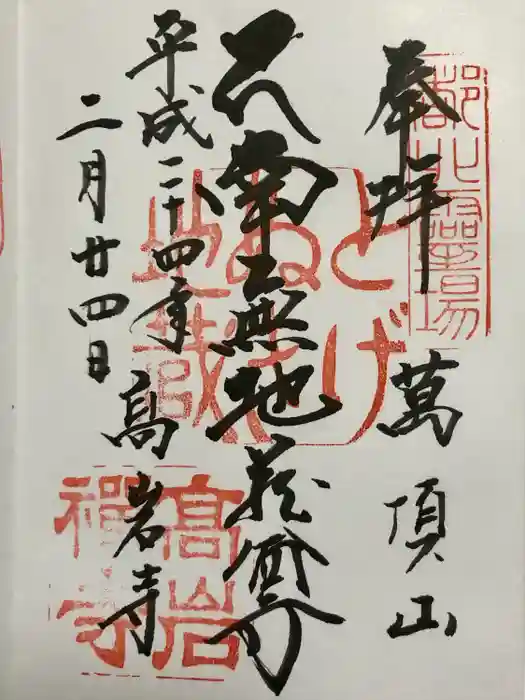 奉拝 萬頂山
南無地蔵尊
平成二十四年 高岩寺
二月廿四日
都北靈場
とげ
ぬき
地蔵
高岩
禪寺